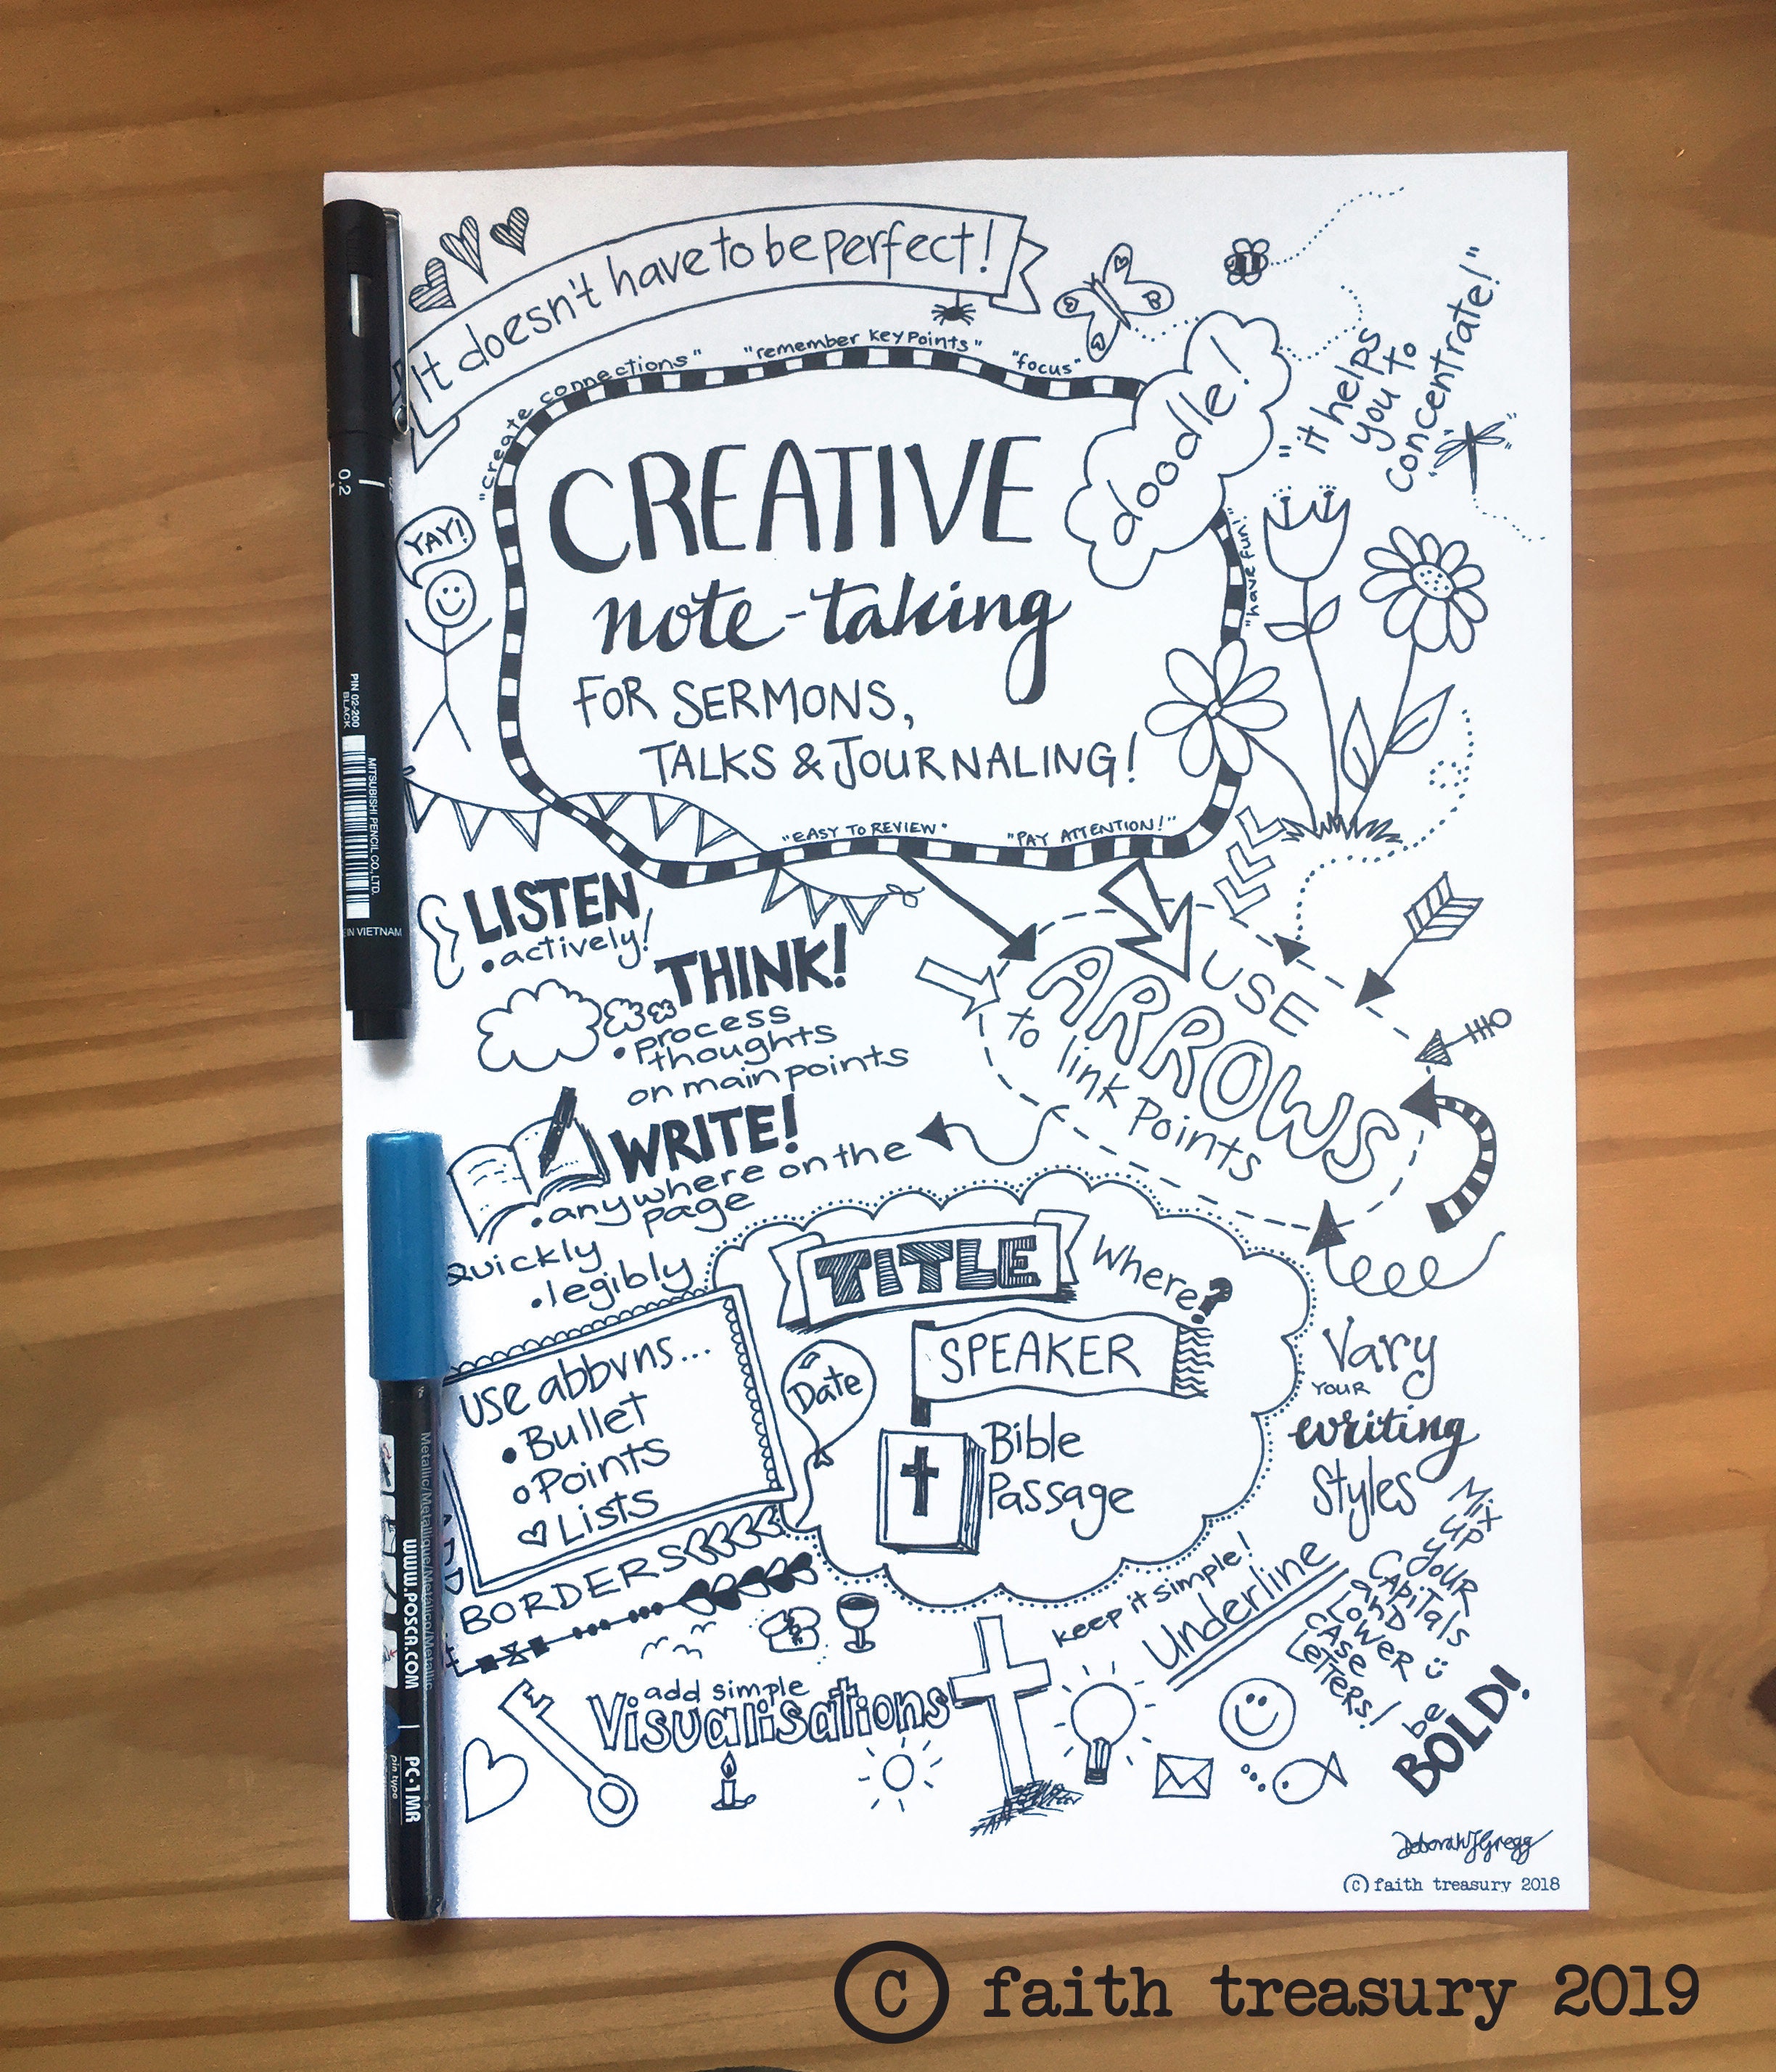 It doesn't have to be perfect!
"create connections"
"remember key points"
"focus"
doodle!
"it helps
you to
concentrate!"
YAY!
CREATIVE
note-taking
FOR SERMONS,
TALKS & JOURNALING!
"have fun!"
"EASY TO REVIEW"
"PAY ATTENTION!"
LISTEN
•actively!
THINK!
•process
thoughts
on main points
WRITE!
•anywhere on the
page
quickly
•legibly
USE
ARROWS
to link Points
TITLE
Where?
SPEAKER
Date
Bible
Passage
use abbvns...
•Bullet
oPoints
♡Lists
ADD
BORDERS
Vary
YOUR
writing
Styles
Mix
up
your
CAPitals
and
LoWeR
CASe
LeTTeRs!
keep it simple!
Underline
be
BOLD!
add simple
Visualisations
DeborahJGregg
© faith treasury 2018
0.2
PIN 02-200
BLACK
MITSUBISHI PENCIL CO., LTD.
IN VIETNAM
Metallic/Metallique/Metálico/Metallic
WWW.POSCA.COM
PC-1MR
pin type
© faith treasury 2019